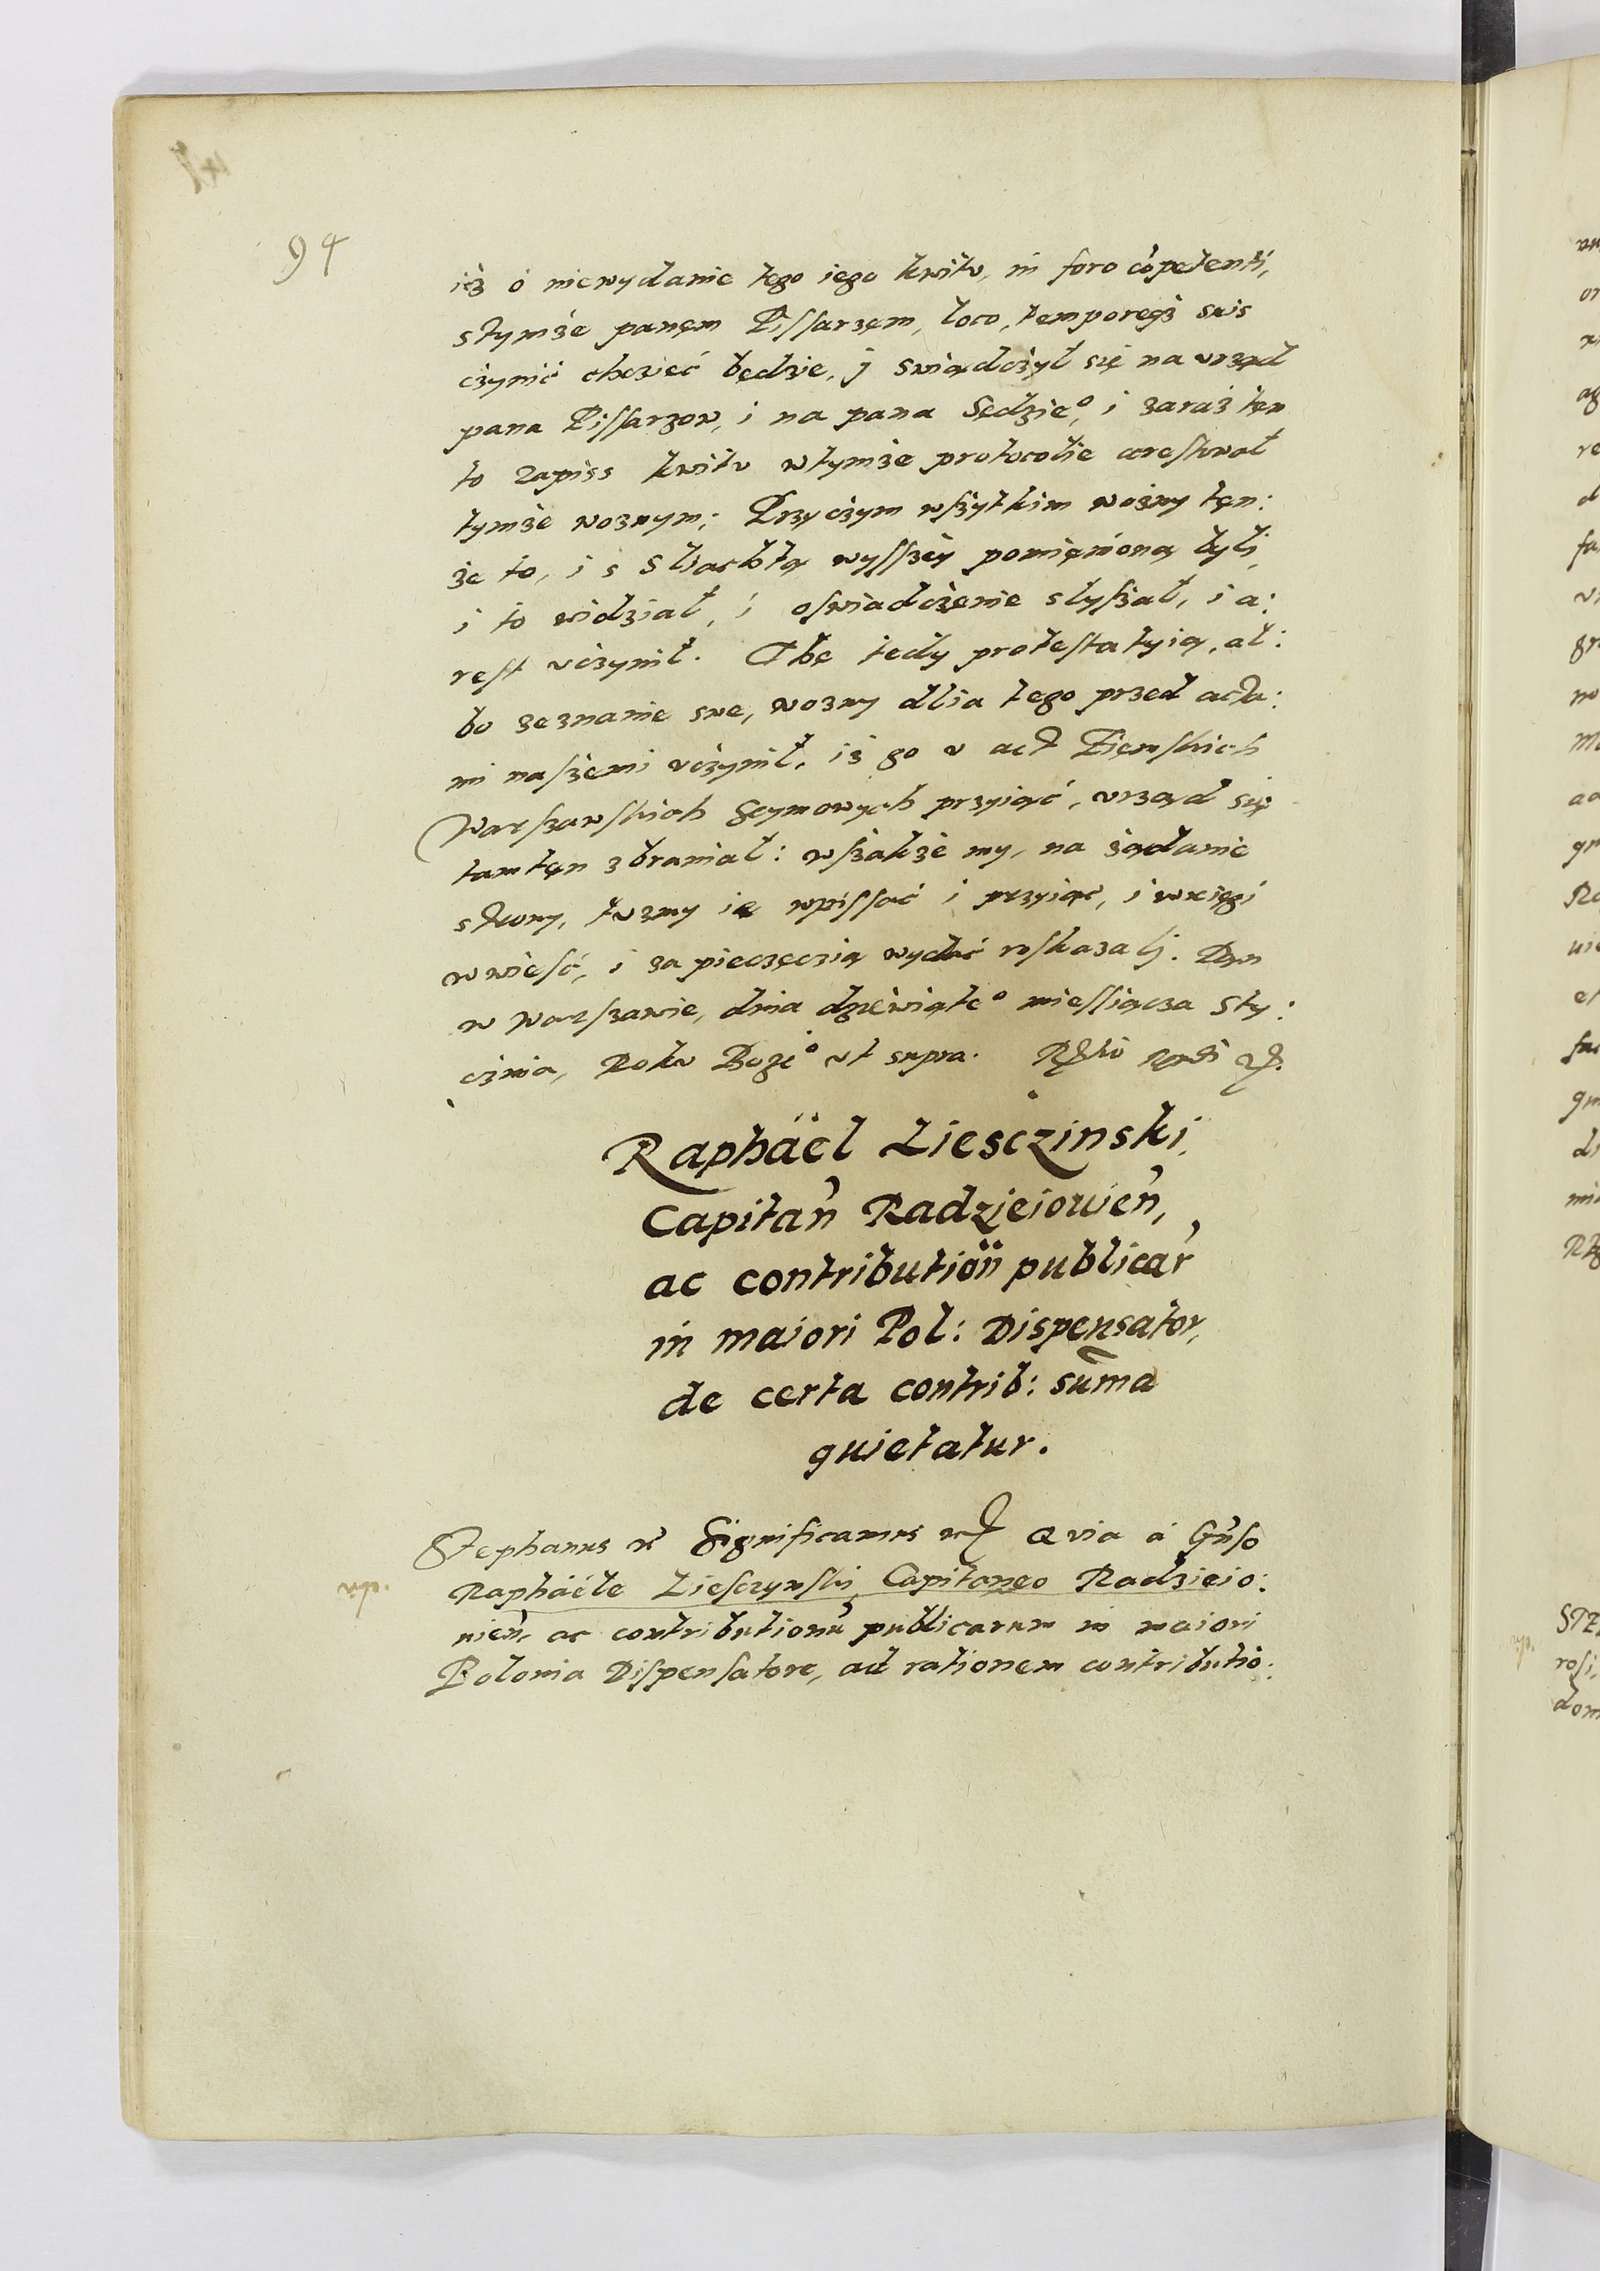 94
iż o niewydanie tego iego kwitu, in foro cōpetenti,
stymże panęm Pissarzęm, loco, temporeqʒ suis
czynić chcieć będzie, j swiądczył się na vrząd
pana Pissarzow, i na pana Sędzieº, i zaraz tęn
to zapiss kwitu wtymże protocolie arestował
tymże woznym; Przyczym wszytkim wozny tęn:
że to, i s Sliachtą wysszey pomięnioną byli,
i to widział, i oswiadczenie słyszał, i a:
rest vczynił. Thę tedy protestatyią, al:
bo zeznanie swe, wozny dlia tego przed acta:
mi naszemi vczynił, iż go v act Ziemskich
Warszawskich Seymowych przyiąć, vrząd się
tamtęn zbraniał: wszakże my, na żądanie
strony, tuzmy ię wpissać i przyiąć, i wxięgi
wwiesć, i za pieczęczią wydać roskazalj. Dan
w Warszawie, dnia dziewiąteº miessiącza Sty:
cznia, Roku Bożeº vt supra.
Raphäel Liesczinski,
Capitan̄ Radzieiowień,
ac contributioñ publicar̄
in maiori Pol: Dispensator,
de certa contrib: sūma
quietatur.
Stephanus Significamus Quia à Gn̄so
Raphäele Liesczynski, Capitaneo Radzieio:
uien̄, ac contributionū publicarum in maiori
Polonia Dispensatore, ad rationem contributio: